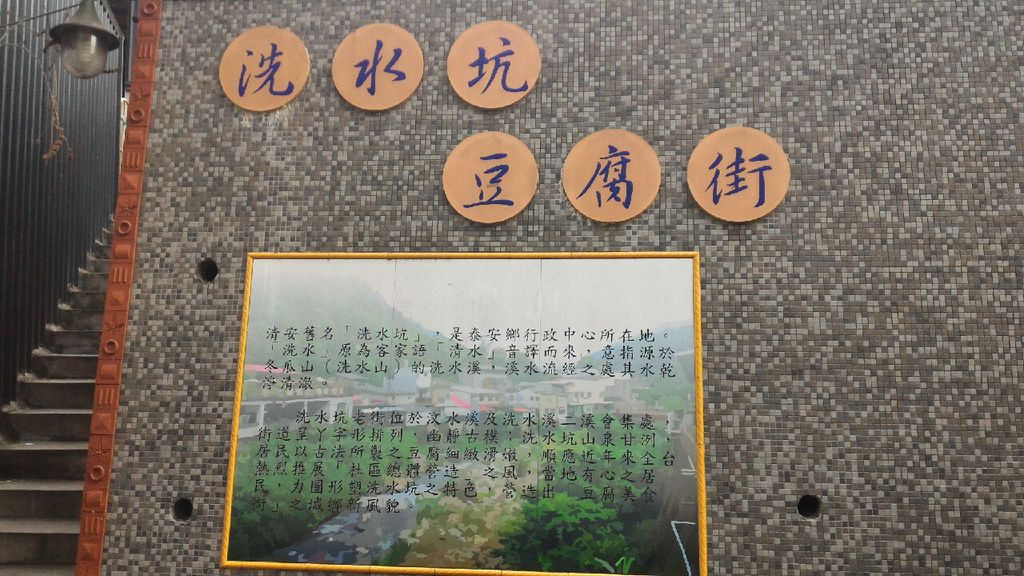 洗水坑
豆腐街
清安舊名「洗水坑」，是泰安鄉行政中心所在地。
「洗水」原為客家語「清水」音譯而來，意指源於
冬瓜山（洗水山）的洗水溪，溪水流經之處其水乾
淨清澈。
洗水坑老街位於汶水溪及洗水溪二溪會集處，
街道呈丫字形排列，幽靜古樸；洗水坑山泉甘洌，
居民以占法所製之豆腐細緻滑嫩，順應近年來全台
熱烈推展「社區總體營造」之風，當地有心之居
民，力圍形塑洗水坑之特色，營造出「豆腐美食
街」之城鄉新風貌。